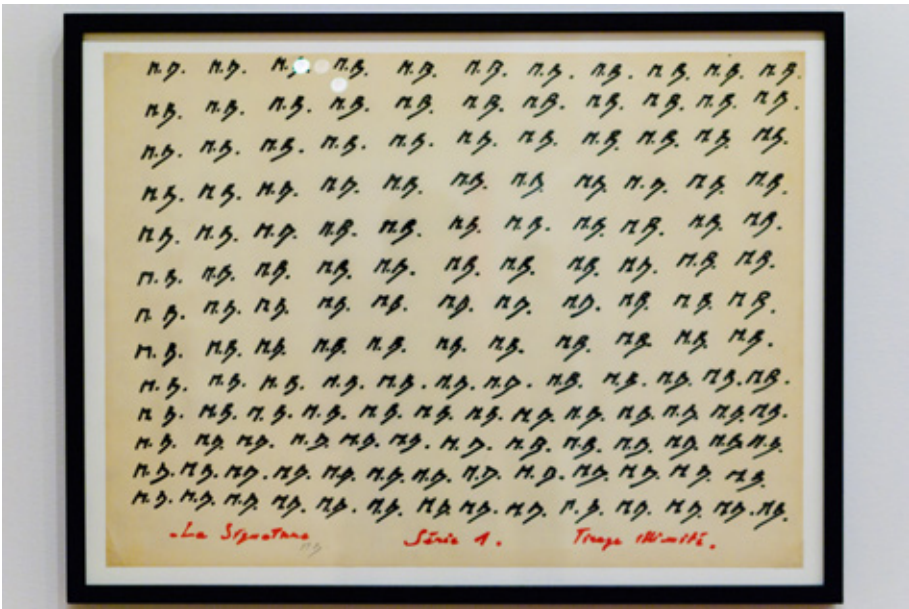 M.B. M.B. M.B. M.B. M.B. M.B. M.B. M.B. M.B. M.B. M.B.
M.B. M.B. M.B. M.B. M.B. M.B. M.B. M.B. M.B. M.B. M.B.
M.B. M.B. M.B. M.B. M.B. M.B. M.B. M.B. M.B. M.B. M.B.
M.B. M.B. M.B. M.B. M.B. M.B. M.B. M.B. M.B. M.B. M.B.
M.B. M.B. M.B. M.B. M.B. M.B. M.B. M.B. M.B. M.B. M.B.
M.B. M.B. M.B. M.B. M.B. M.B. M.B. M.B. M.B. M.B. M.B.
M.B. M.B. M.B. M.B. M.B. M.B. M.B. M.B. M.B. M.B. M.B.
M.B. M.B. M.B. M.B. M.B. M.B. M.B. M.B. M.B. M.B. M.B.
M.B. M.B. M.B. M.B. M.B. M.B. M.B. M.B. M.B. M.B. M.B. M.B.
M.B. M.B. M.B. M.B. M.B. M.B. M.B. M.B. M.B. M.B. M.B. M.B. M.B.
M.B. M.B. M.B. M.B. M.B. M.B. M.B. M.B. M.B. M.B. M.B. M.B. M.B.
M.B. M.B. M.B. M.B. M.B. M.B. M.B. M.B. M.B. M.B. M.B. M.B. M.B.
M.B. M.B. M.B. M.B. M.B. M.B. M.B. M.B. M.B. M.B. M.B. M.B. M.B. M.B.
La Signature Série 1. Tirage illimité.
M.B